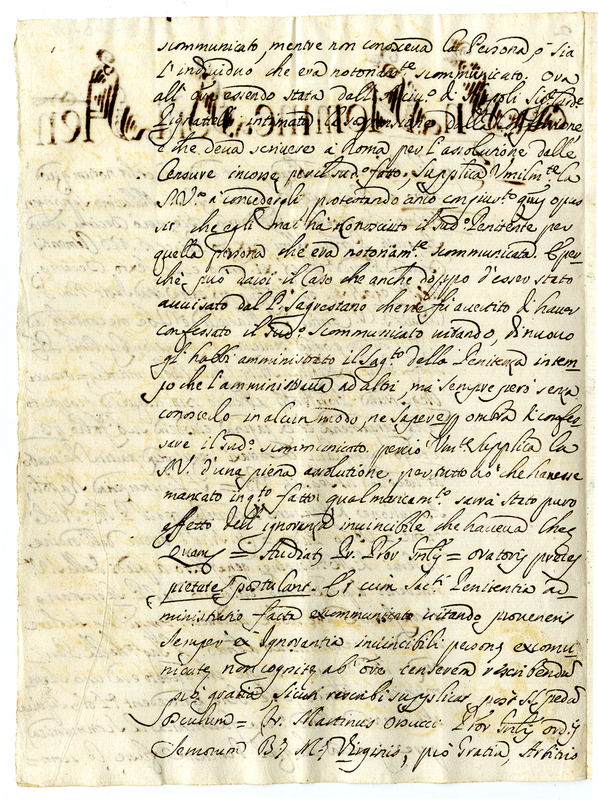 scommunicato, mentre non conosceva la Persona, ò sia
l'individuo che era notoriam.te scommunicato. Ora
all' essendo stata dall' di Napoli
intimata la sospensione della Confessione,
e che deva scrivere à Roma per l'assoluzione dalle
Censure incorse per il sud.o fatto, supplica Umilm.te la
S.V. à concedergli protestando anco con giur.to
che egli mai hà riconosciuto il sud.o Penitente per
quella persona ch'era notoriam.te scommunicata. E per
che può darsi il Caso che anche doppo d'esser stato
avvisato dal P. Sagrestano che fù avertito di haver
confessato il sud.o scommunicato vitando, di nuovo
gl'habbi amministrato il Sag.to della Penitenza in tem-
po che l'amministrava ad altri, mà sempre però senza
conoscerlo in alcun modo, ne sapere ombra di confes
sare il sud.o scommunicato, perciò Um.te supplica la
S.V. d'una piena assoluzione per tutto ciò che havesse
mancato in q.to fatto, qual mancam.to sarà stato puro
effetto dell'ignoranza invincibile che haveva
Quam = Studiat, Pr. Prov. = oratoris preces
pietate postulant. Et cum Sac.ti Penitentia ad-
ministratio facta excommunicato vitando provenerit
semper ex Ignorantia invincibili persone excomu-
nicate non cognite, ab' censerem rescribendum
pro gratia, sicuti rescribi supplicat post pedum
osculum = Fr. Martinus Prov. ord.s
Servorum B. M. Virginis, pro Gratia, Arbitrio